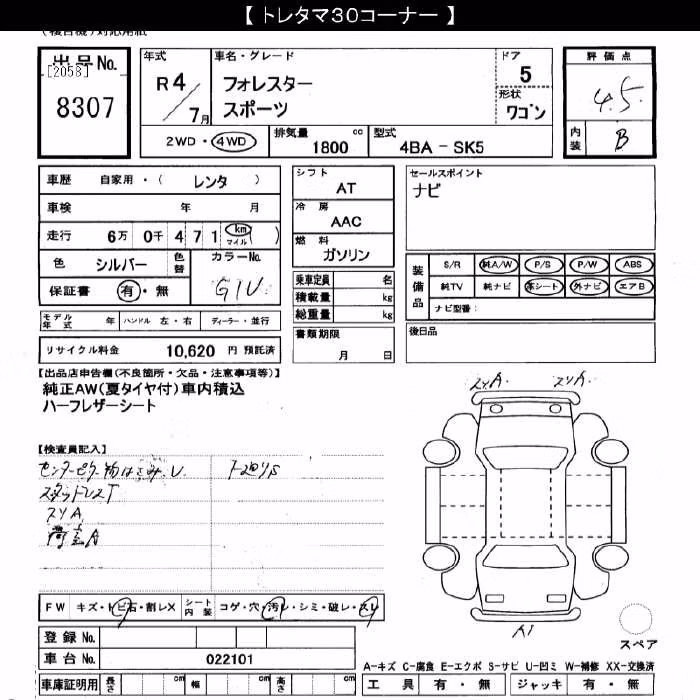 【 トレタマ３０コーナー 】
（複合機）対応用紙
出品No.
[2058]
8307
年式
R 4 / 7月
車名・グレード
フォレスター
スポーツ
ドア
5
形状
ワゴン
評価点
4.5
内装
B
2WD ・ 4WD
排気量 cc
1800
型式
4BA － SK5
車歴 自家用・（ レンタ ）
車検 年 月
走行 6万 0千 4 7 1 (km マイル)
色 シルバー 色替 カラーNo. G1U
保証書 有・無
モデル年式 年 ハンドル 左・右 ディーラー・並行
リサイクル料金 10,620 円 預託済
シフト
AT
冷房
AAC
燃料
ガソリン
乗車定員 名
積載量 kg
総重量 kg
書類期限
月 日
セールスポイント
ナビ
装備品
S/R 純A/W P/S P/W ABS
純TV 純ナビ 革シート 外ナビ エアB
ナビ型番：
後日品
【出品店申告欄(不良箇所・欠品・注意事項等)】
純正AW(夏タイヤ付)車内積込
ハーフレザーシート
【検査員記入】
スリA
スリA. スリA.
A1
FW キズ・トビ石・割レX シート内装 コゲ・穴・汚レ・シミ・破レ・スレ
登録 No.
車台 No. 022101
車庫証明用 長さ cm 幅 cm 高さ cm
スペア
A-キズ C-腐食 E-エクボ S-サビ U-凹ミ W-補修 XX-交換済
工具 有・無 ジャッキ 有・無